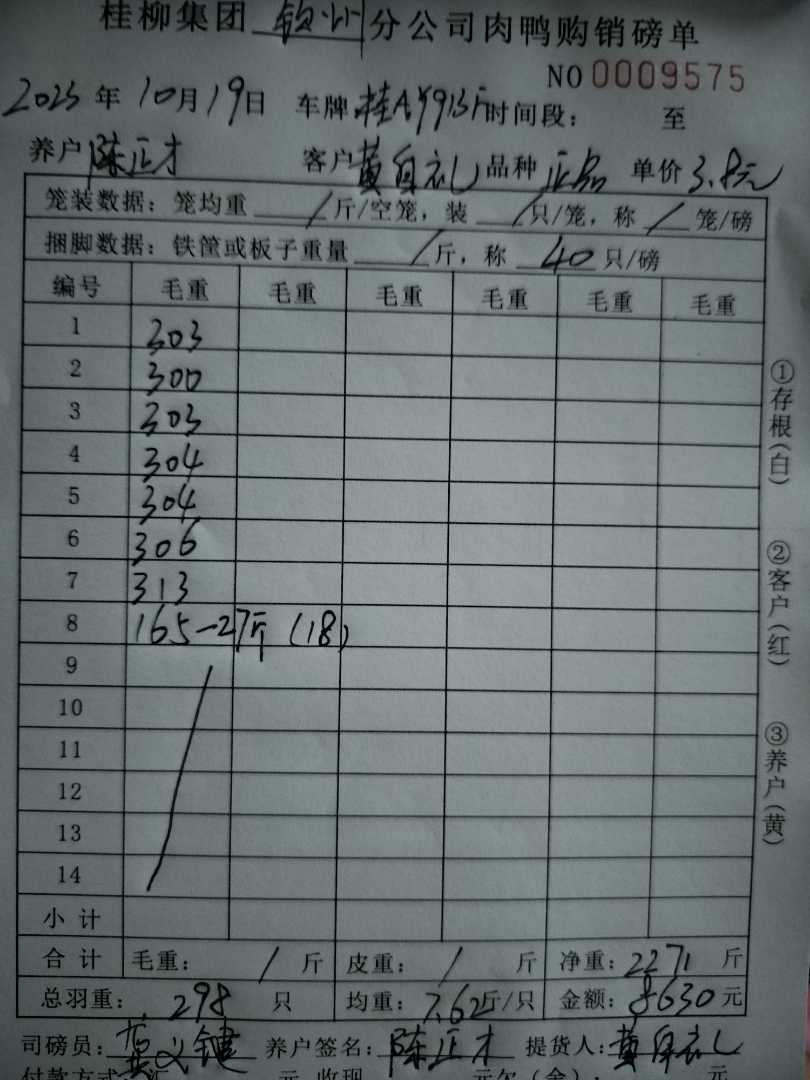 桂柳集团 钦州 分公司肉鸭购销磅单
NO 0009575
2025年10月19日 车牌 桂A 时间段： 至
养户 陈正才 客户 黄自礼 品种 正品 单价 3.8元
笼装数据：笼均重 / 斤/空笼，装 / 只/笼，称 / 笼/磅
捆脚数据：铁筐或板子重量 / 斤，称 40 只/磅
编号 毛重 毛重 毛重 毛重 毛重 毛重
1 303
2 300
3 303
4 304
5 304
6 306
7 313
8 165-27斤 (18)
9
10
11
12
13
14
小计
合计 毛重： / 斤 皮重： / 斤 净重：2271 斤
总羽重： 298 只 均重：7.62斤/只 金额：8630元
司磅员： 养户签名：陈正才 提货人：黄自礼
付款方式：汇 元 收现 元欠（余）： 元
①存根（白）
②客户（红）
③养户（黄）